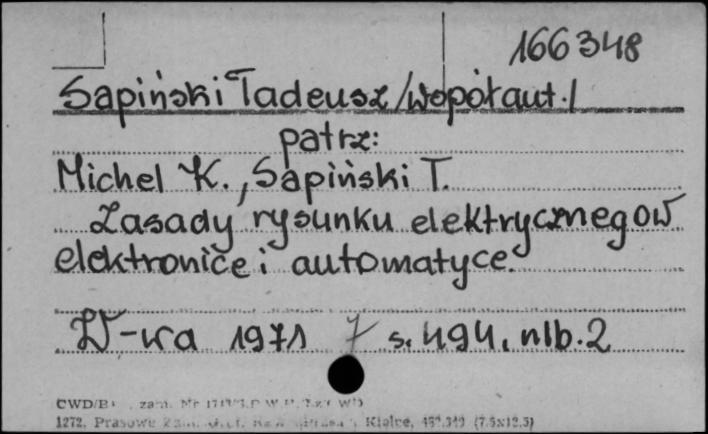 166348
Sapiński Tadeusz /współaut./
patrz:
Michel K., Sapiński T.
Zasady rysunku elektrycznego w
elektronice i automatyce.
W-wa 1971 7 s. 494, nlb. 2
CWD/B zam. Nr
1272, Prasowe Kielce, (7.5x12.5)